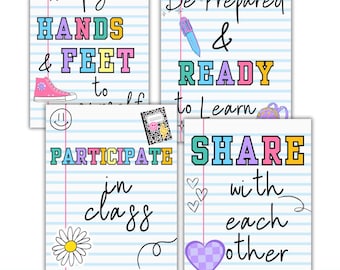 HANDS
& FEET
to
Be Prepared
&
READY
to Learn
PARTICIPATE
in
class
SHARE
with
each
other